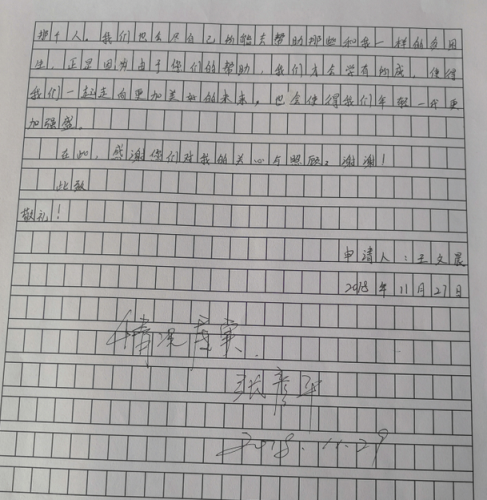 人。我们也会尽自己的能去帮助那些和我一样的贫困
生，正是因为由于你们的帮助，我们才会学有所成，使得
我们一起走向更加美好的未来，也会使得我们年轻一代更
加强盛。
在此，感谢你们对我的关心与照顾，谢谢！
此致
敬礼！
申请人：王文晨
2018年11月27日
情况属实.
张
2018.11.29